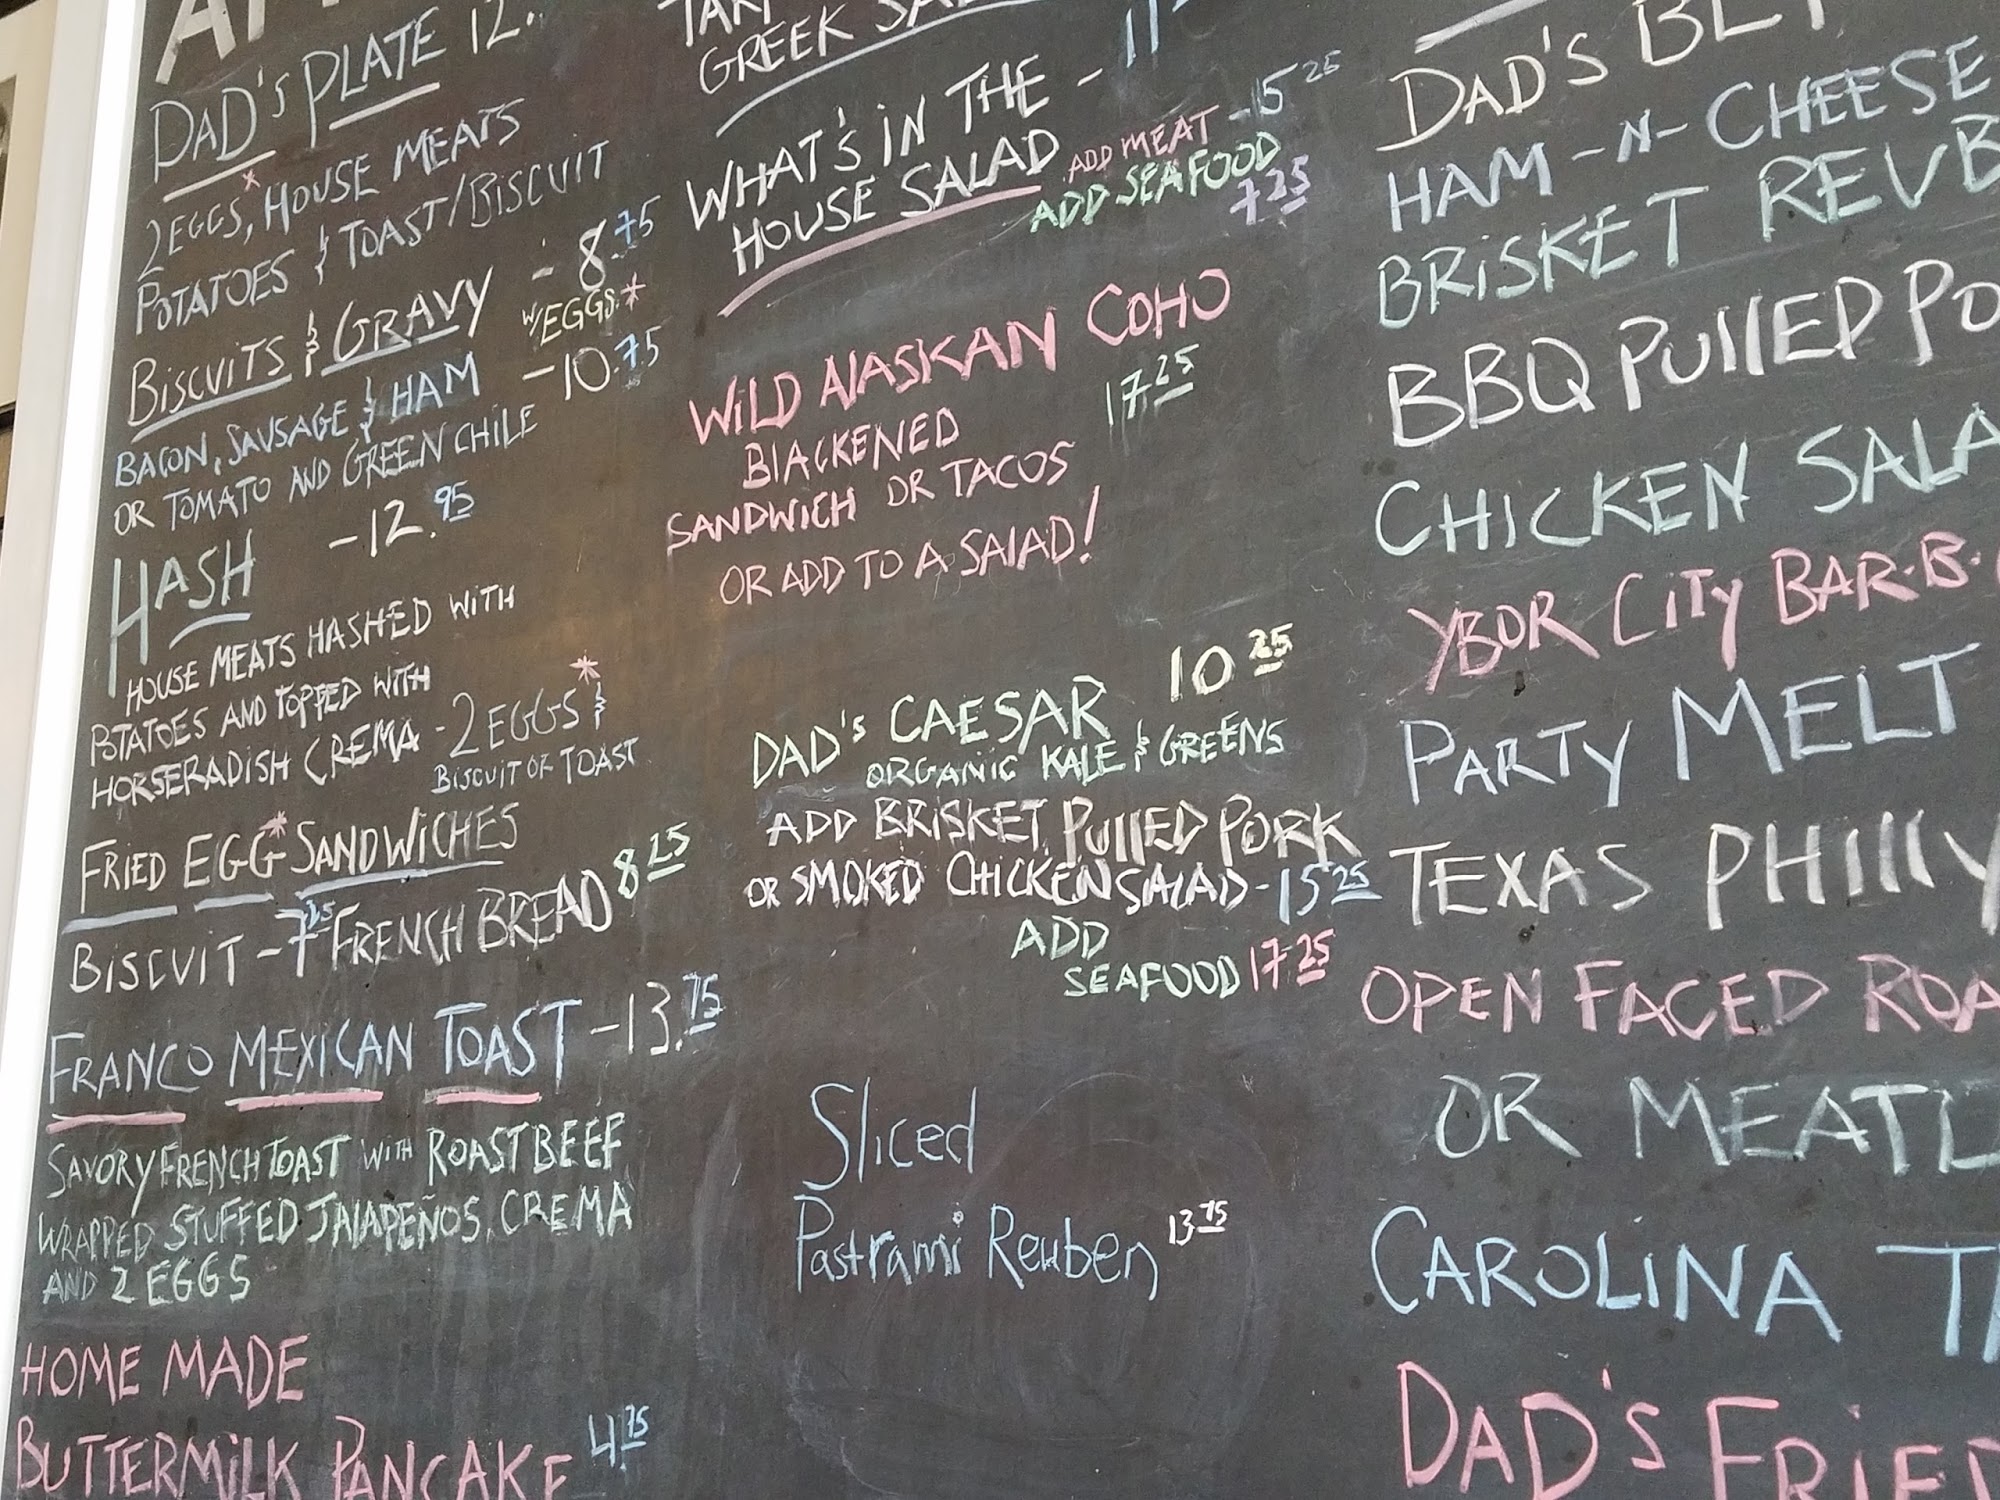 DAD'S PLATE 12.
2 EGGS*, HOUSE MEATS
POTATOES & TOAST/BISCUIT
BISCUITS & GRAVY - 8.75
W/EGGS.*
BACON, SAUSAGE & HAM - 10.75
OR TOMATO AND GREEN CHILE
HASH - 12.95
HOUSE MEATS HASHED WITH
POTATOES AND TOPPED WITH
HORSERADISH CREMA - 2 EGGS* &
BISCUIT OR TOAST
FRIED EGG* SANDWICHES
BISCUIT - 7.25 FRENCH BREAD 8 25
FRANCO MEXICAN TOAST - 13.75
SAVORY FRENCH TOAST WITH ROAST BEEF
WRAPPED STUFFED JALAPEÑOS, CREMA
AND 2 EGGS
HOME MADE
BUTTERMILK PANCAKE 4.75
GREEK
WHAT'S IN THE - 11
HOUSE SALAD ADD MEAT - 15 25
ADD SEAFOOD
7 25
WILD ALASKAN COHO
BLACKENED 17 25
SANDWICH OR TACOS
OR ADD TO A SALAD!
DAD'S CAESAR 10 25
ORGANIC KALE & GREENS
ADD BRISKET, PULLED PORK
OR SMOKED CHICKEN SALAD - 15 25
ADD
SEAFOOD 17.25
Sliced
Pastrami Reuben 13 75
DAD'S BLT
HAM -N- CHEESE
BRISKET
BBQ PULLED
CHICKEN
YBOR CITY
PARTY MELT
TEXAS PHILLY
OPEN FACED
OR
CAROLINA
DAD'S